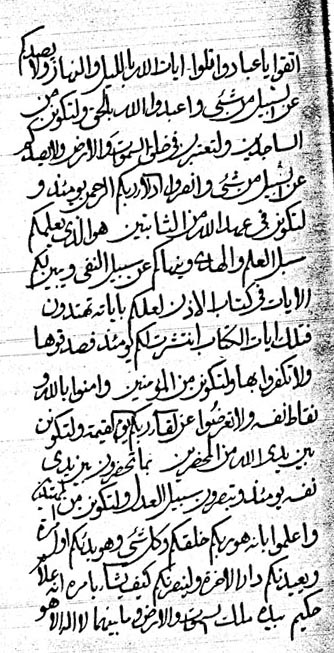 اتقوا يا عباد واتلوا ايات الله بالليل والنهار ولا يصدكم
عن السبيل من شئ واعبدوا الله بالحق ولتكونن من
الساجدين ولتعتبرن في خلق السموات والارض ولا يصدكم
عن السبيل من شئ واتقوا اذ اراد ربكم الرحمن يومئذ و
لتكونن في عهد الله من الثابتين هو الذي يعلمكم
سبل العلم والهدى وينهاكم عن سبيل النفى ويبين لكم
الايات في كتاب الاذن لعلكم باياته تهتدون
فتلك ايات الكتاب انتشرت لكم يومئذ فصدقوها
ولا تكفروا بها ولتكونن من المؤمنين وامنوا بالله و
لقاء نفسه ولا تعرضوا عن لقاء ربكم يوم القيمة ولتكونن
بين يدي الله من المحضرين بما تحضرون بين يدي
نفسه يومئذ وتبصرون سبيل العدل ولتكونن من
واعلموا بانه هو ربكم خلقكم وكل شئ وهو بدئكم اول مرة
ويعيدنكم دار الاخرة ولينصرنكم كيف يشاء بامره انه علام
حكيم بيده ملك السموات والارض وما بينهما لا اله الا هو